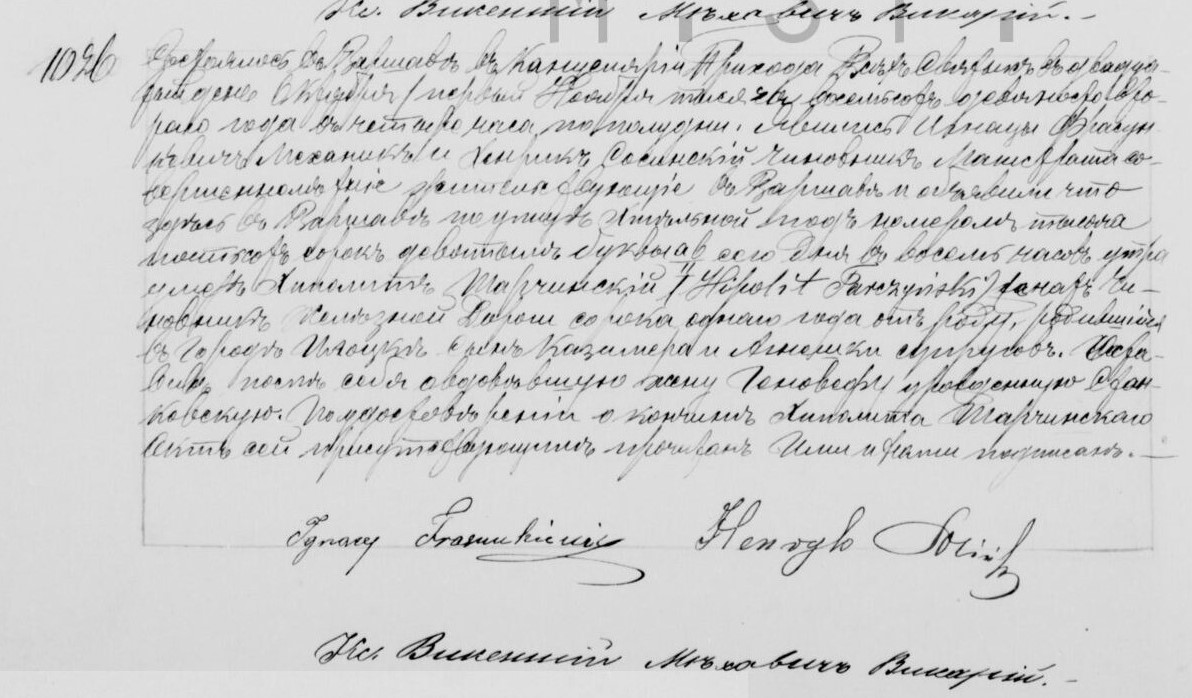 Кс. Викентий Мѣховичъ Викарій. —
1026 Состоялось въ Варшавѣ въ Канцеляріи Прихода Всѣхъ Святыхъ въ двадца-
тый день Октября / первый Ноября тысяча восемьсотъ девяносто вто-
раго года въ четыре часа по полудни. Явились Игнацы Фрасун-
кевичъ Механикъ и Хенрикъ Сосинскій Чиновникъ Магистрата со-
вершеннолѣтніе жительствующіе въ Варшавѣ и объявили что
здѣсь въ Варшавѣ по улицѣ Хмѣльной подъ номеромъ тысяча
пятьсотъ сорокъ девятымъ буквы ав сего дня въ восемь часовъ утра
умеръ Хиполитъ Тарчинскій / Hipolit Tarczyński / женатъ Чи-
новникъ Желѣзной Дороги сорока однаго года отъ роду, родившійся
въ городѣ Плоцкѣ сынъ Казимера и Агнешки супруговъ. Оста-
вивъ послѣ себя овдовѣвшую жену Геновефу урожденную Стан-
ковскую. По удостовѣреніи о кончинѣ Хиполита Тарчинскаго
Актъ сей присутствующимъ прочитанъ Ими и нами подписанъ. —
Ignacy Frasunkiewicz Henryk
Кс. Викентий Мѣховичъ Викарій. —